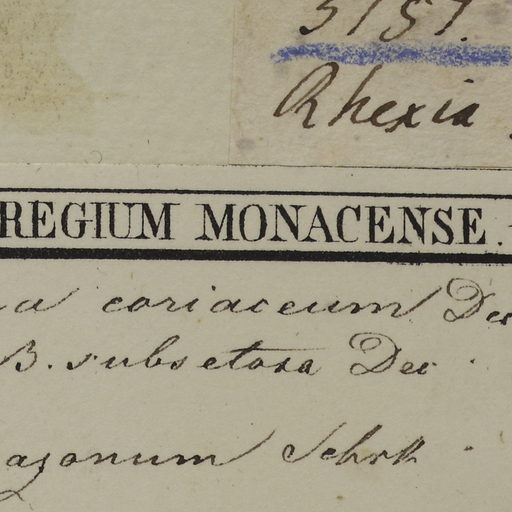 5157.
Rhexia
REGIUM MONACENSE.
a coriaceum Dec
B. subsetosa Dec.
agonum Schrk.